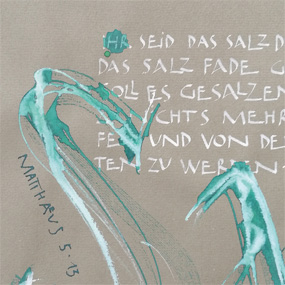 IHR SEID DAS SALZ D
DAS SALZ FADE G
SOLL ES GESALZEN
ICHTS MEHR
FE UND VON DE
TEN ZU WERDEN
MATTHAEUS 5·13